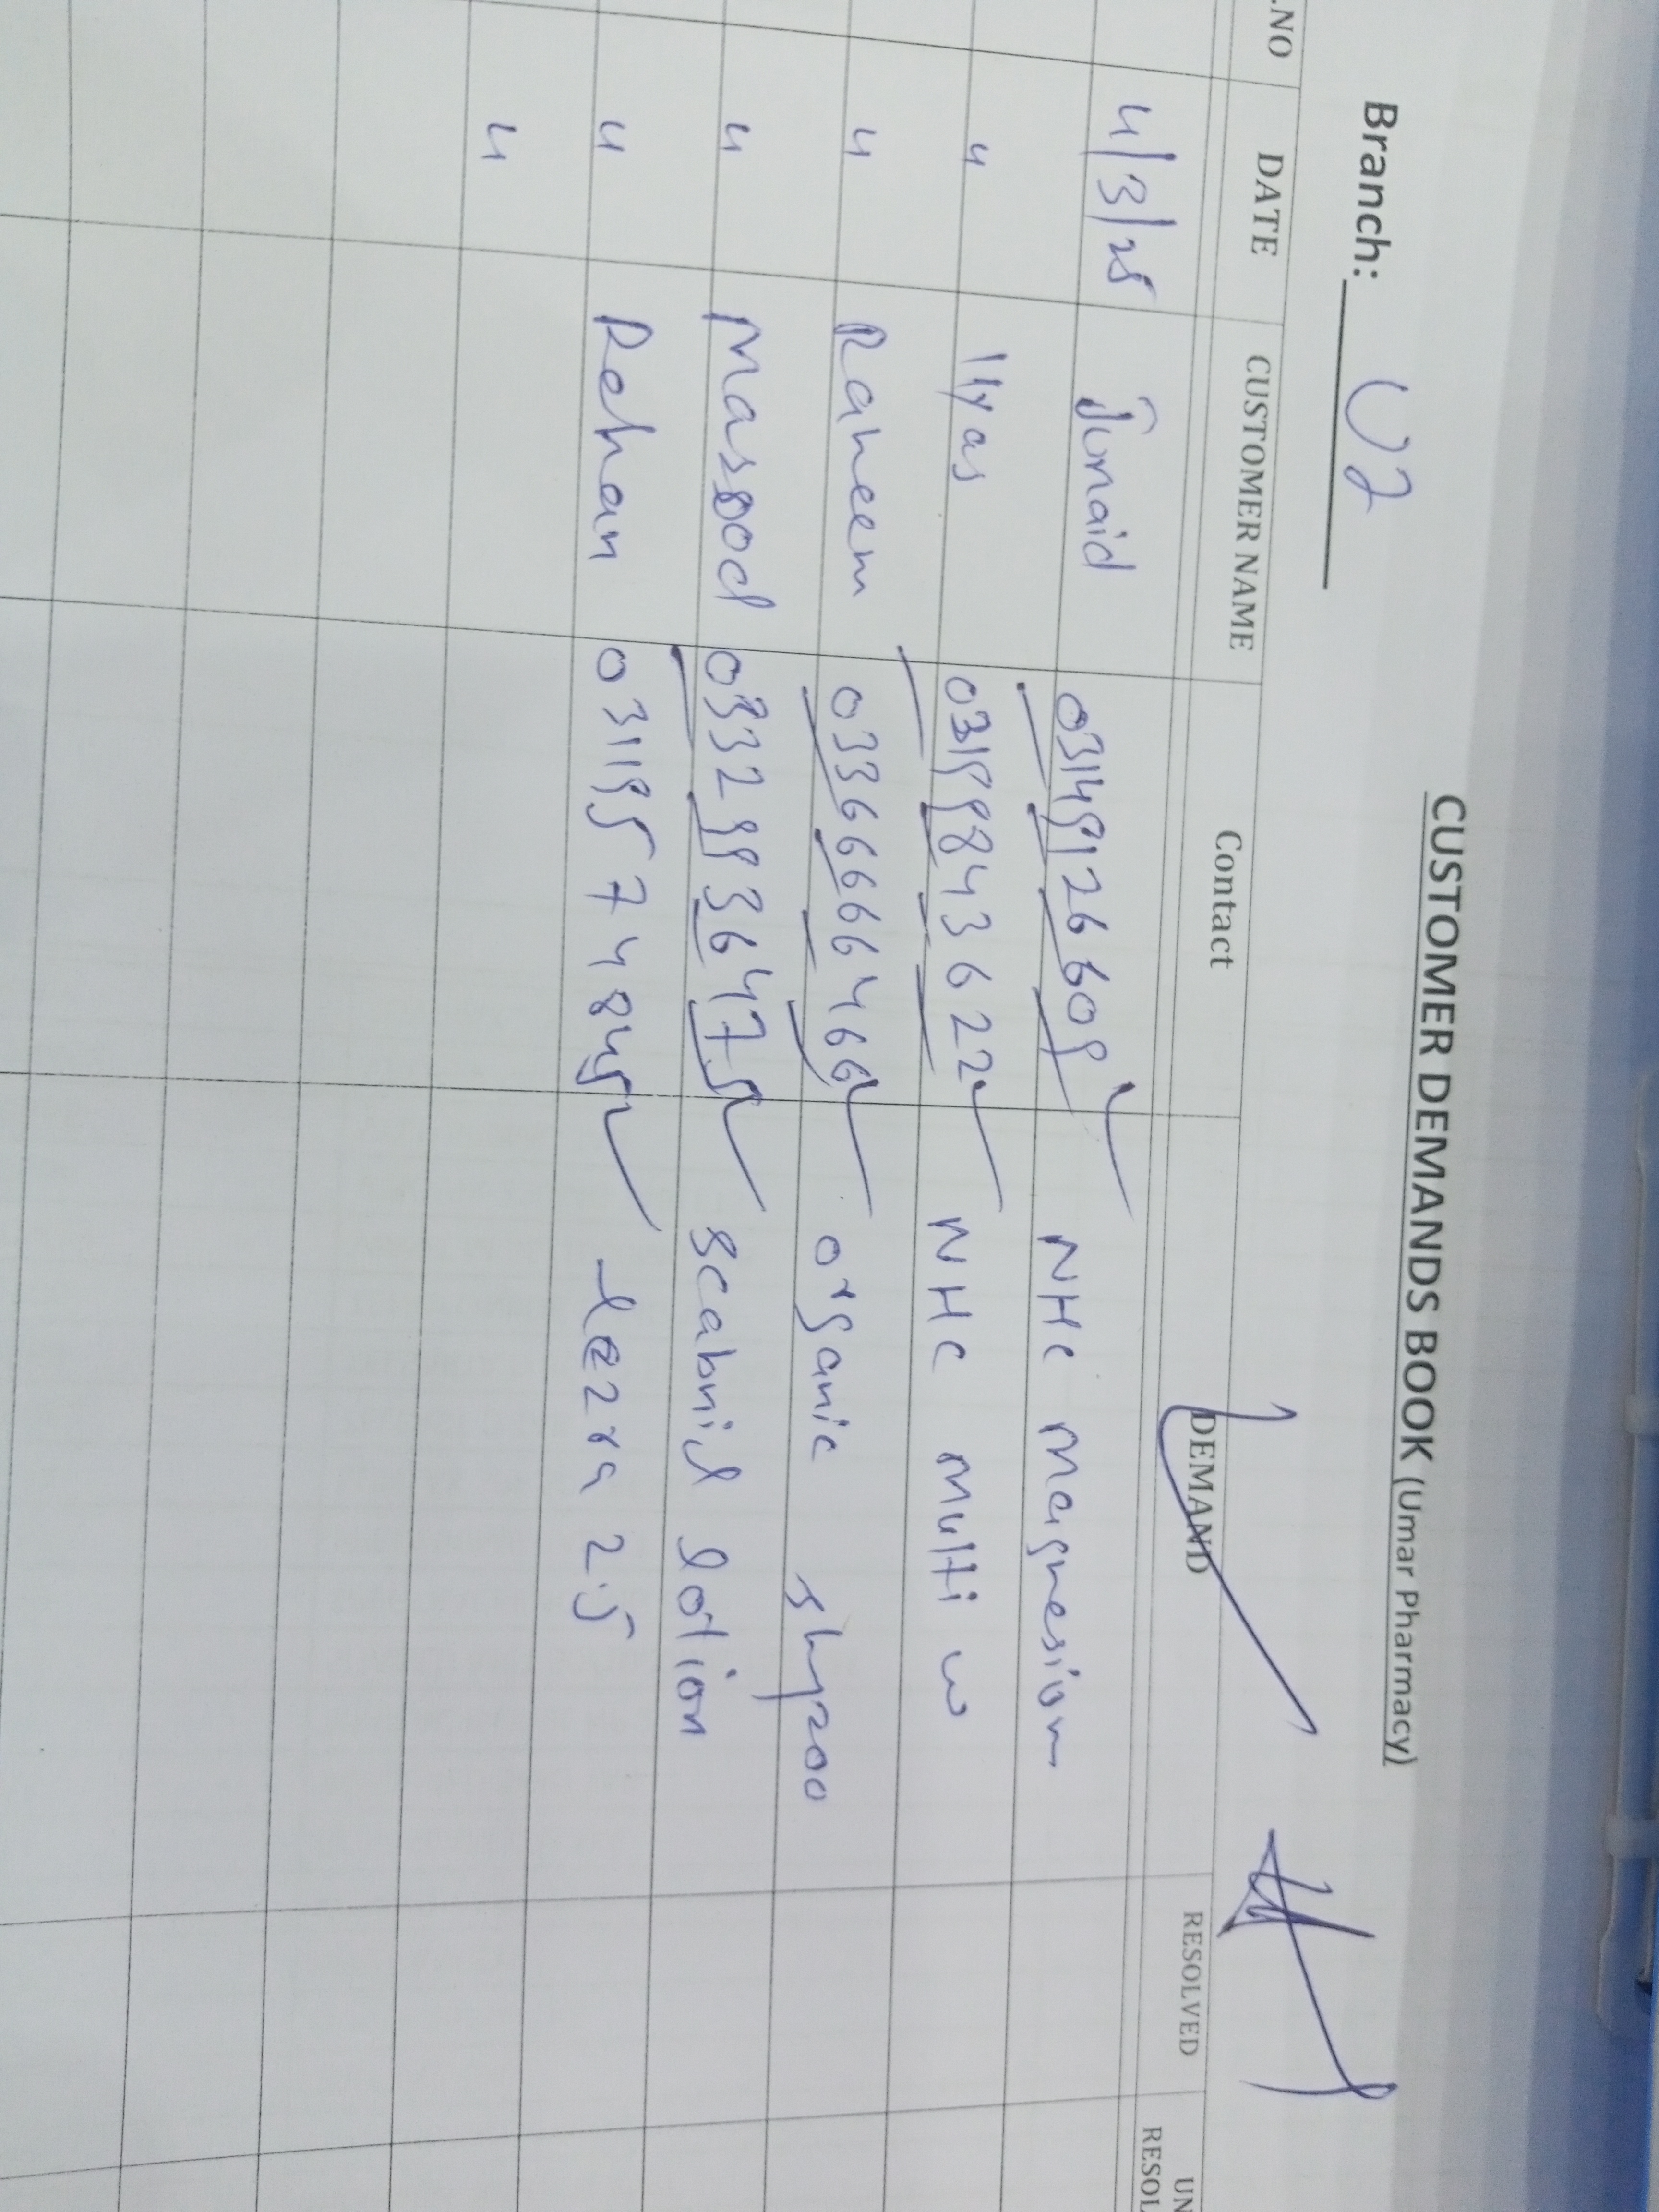 CUSTOMER DEMANDS BOOK (Umar Pharmacy)
Branch: U2
.NO DATE CUSTOMER NAME Contact DEMAND RESOLVED UN RESOL
4/3/25 Junaid 03149126609 NHC Magnesium
" Ilyas 03199843622 NHC Multi w
" Raheem 03366666466 organic
" Masood 03329936475 Scabnil lotion
" Rehan 03119574845 lezra 2.5
"